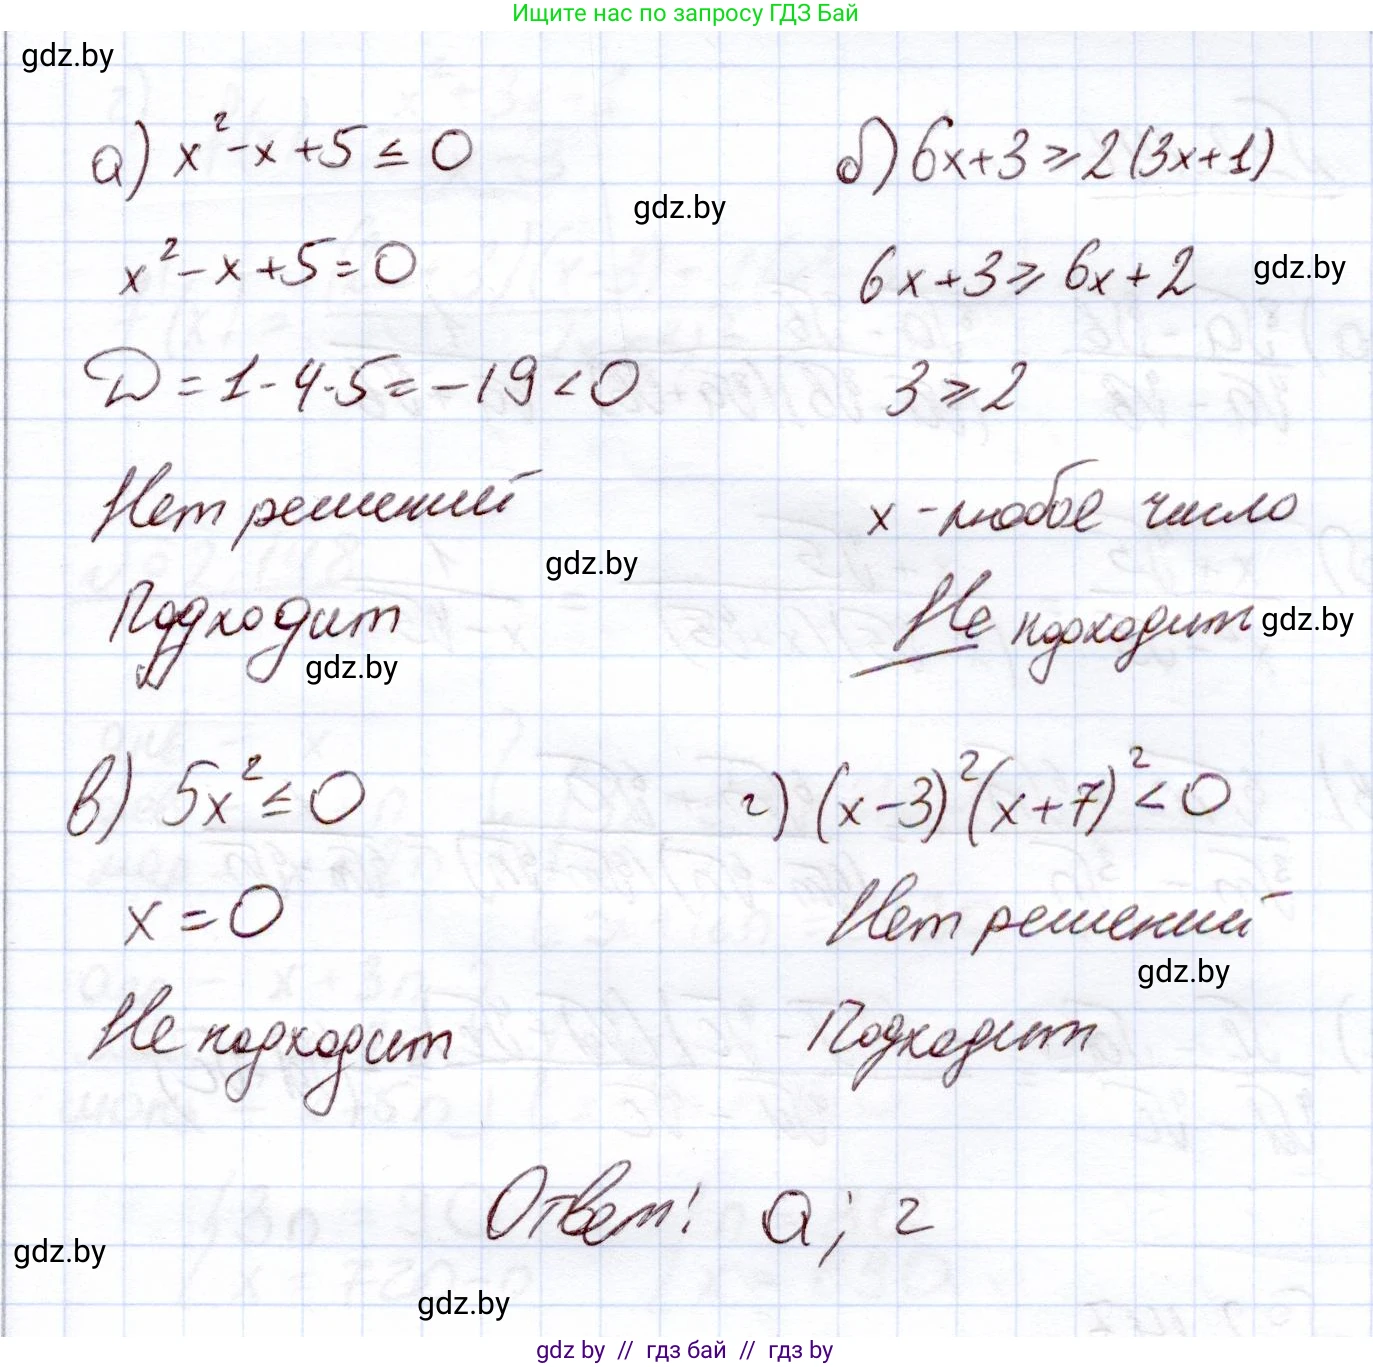 Ищите нас по запросу ГДЗ Бай
gdz.by
а) x² - x + 5 ≤ 0
x² - x + 5 = 0
D = 1 - 4·5 = -19 < 0
Нет решений
Подходит
gdz.by
gdz.by
gdz.by
б) 6x + 3 ≥ 2(3x + 1)
6x + 3 ≥ 6x + 2
gdz.by
3 ≥ 2
x - любое число
Не подходит
gdz.by
в) 5x² ≤ 0
x = 0
Не подходит
г) (x - 3)² (x + 7)² < 0
Нет решений
gdz.by
Подходит
Ответ: а; г
gdz.by
gdz.by
gdz by // гдз бай // гдз by